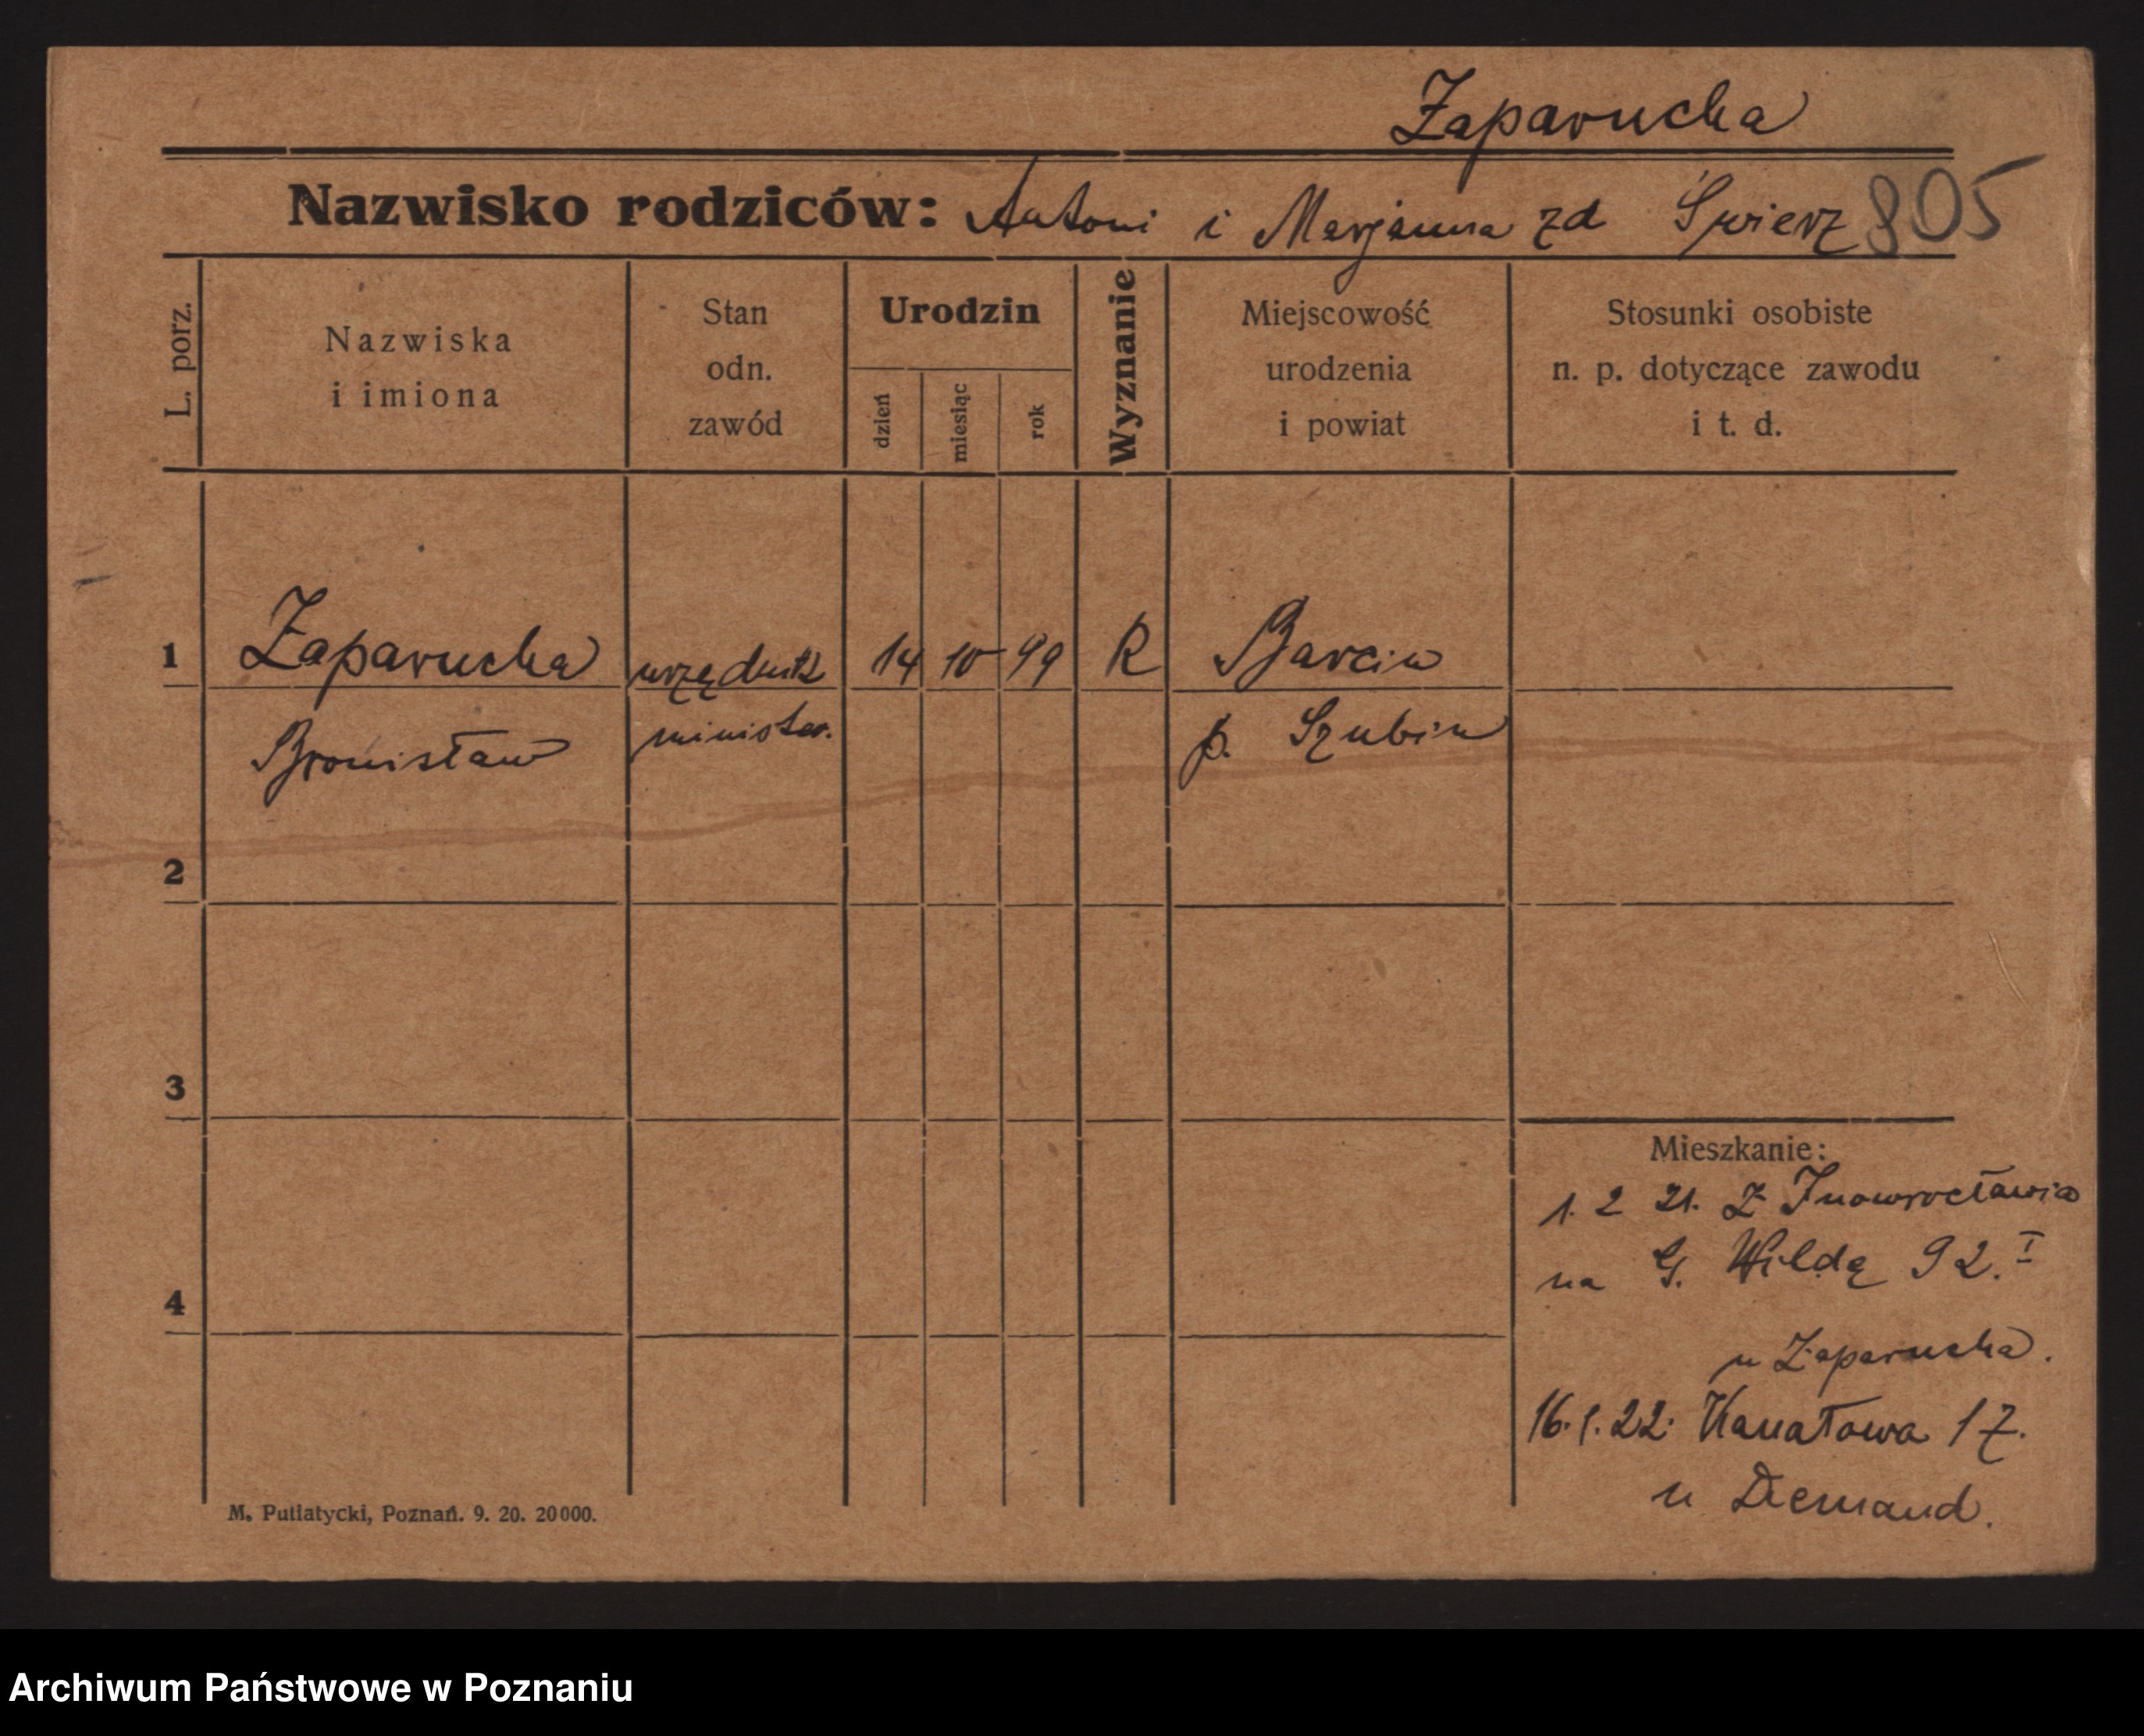 Zaparucha
Nazwisko rodziców: Antoni i Marjanna zd Świerz 805
L. porz.
Nazwiska
i imiona
Stan
odn.
zawód
Urodzin
dzień
miesiąc
rok
Wyznanie
Miejscowość
urodzenia
i powiat
Stosunki osobiste
n. p. dotyczące zawodu
i t. d.
1 Zaparucha urzędnik 14 10 99 R Barcin
Bronisław minister. p. Szubin
2
3
4
Mieszkanie:
1. 2 21. Z Inowrocławia
na G. Wildę 92. I
u Zaparucha.
16.1.22. Kanałowa 17.
u Diemand.
M. Putiatycki, Poznań. 9. 20. 20000.
Archiwum Państwowe w Poznaniu